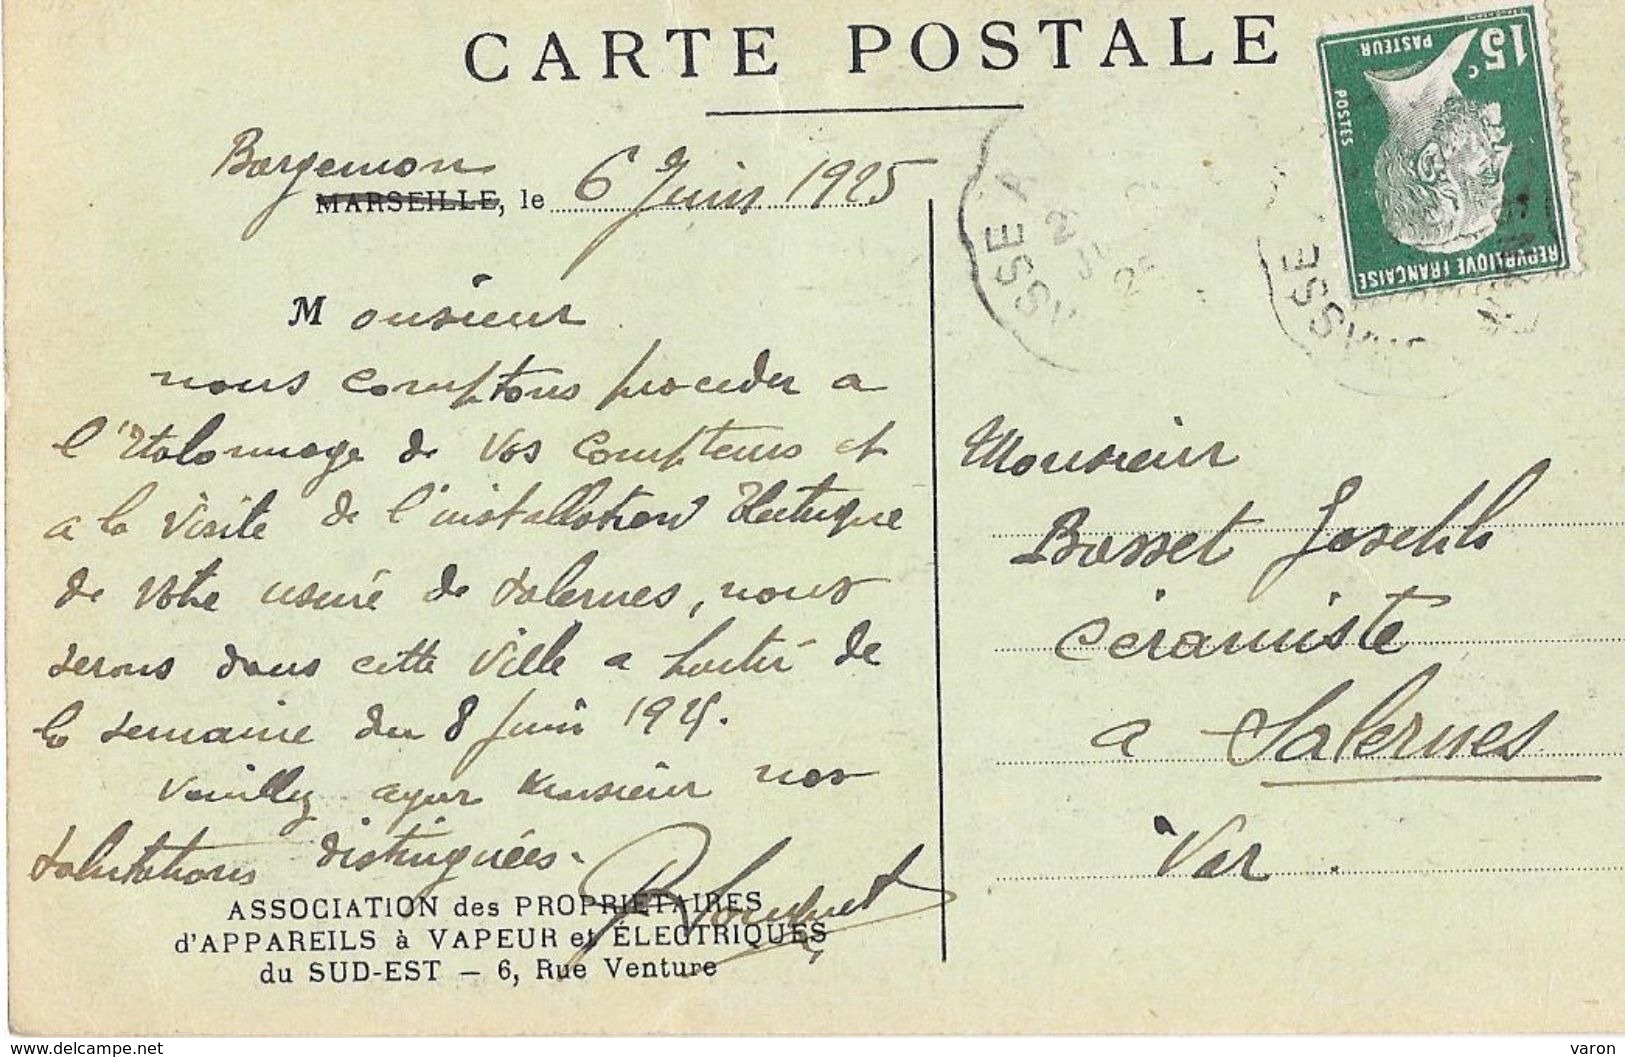 CARTE POSTALE
Bargemon
MARSEILLE, le 6 Juin 1925
Monsieur
nous comptons proceder a
l'Etalonnage de vos compteurs et
a la visite de l'installation Electrique
de votre usine de Salernes, nous
serons dans cette ville a partir de
la semaine du 8 Juin 1925.
Veuillez agreer Monsieur nos
salutations distinguées.
ASSOCIATION des PROPRIETAIRES
d'APPAREILS à VAPEUR et ÉLECTRIQUES
du SUD-EST — 6, Rue Venture
15c
PASTEUR
POSTES
REPUBLIQUE FRANÇAISE
Monsieur
Basset Joseph
Céramiste
a Salernes
Var.
varon